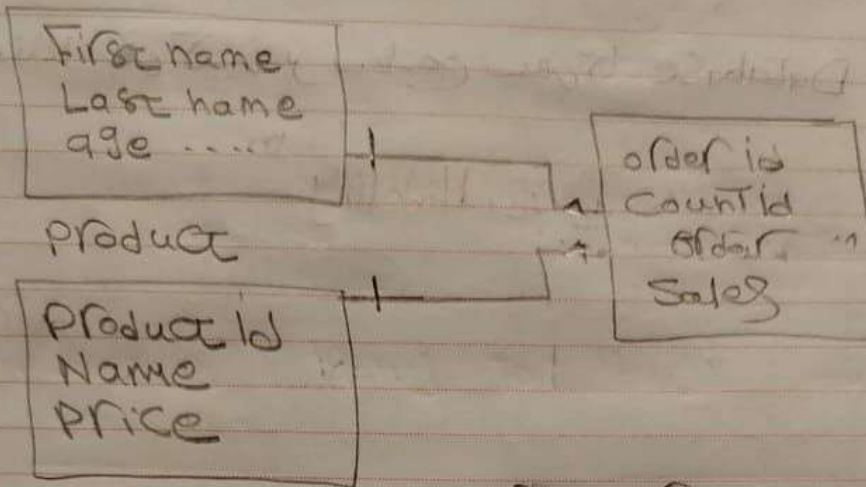 First name
Last name
age ....
product
product Id
Name
price
order id
Count id
order
Sales